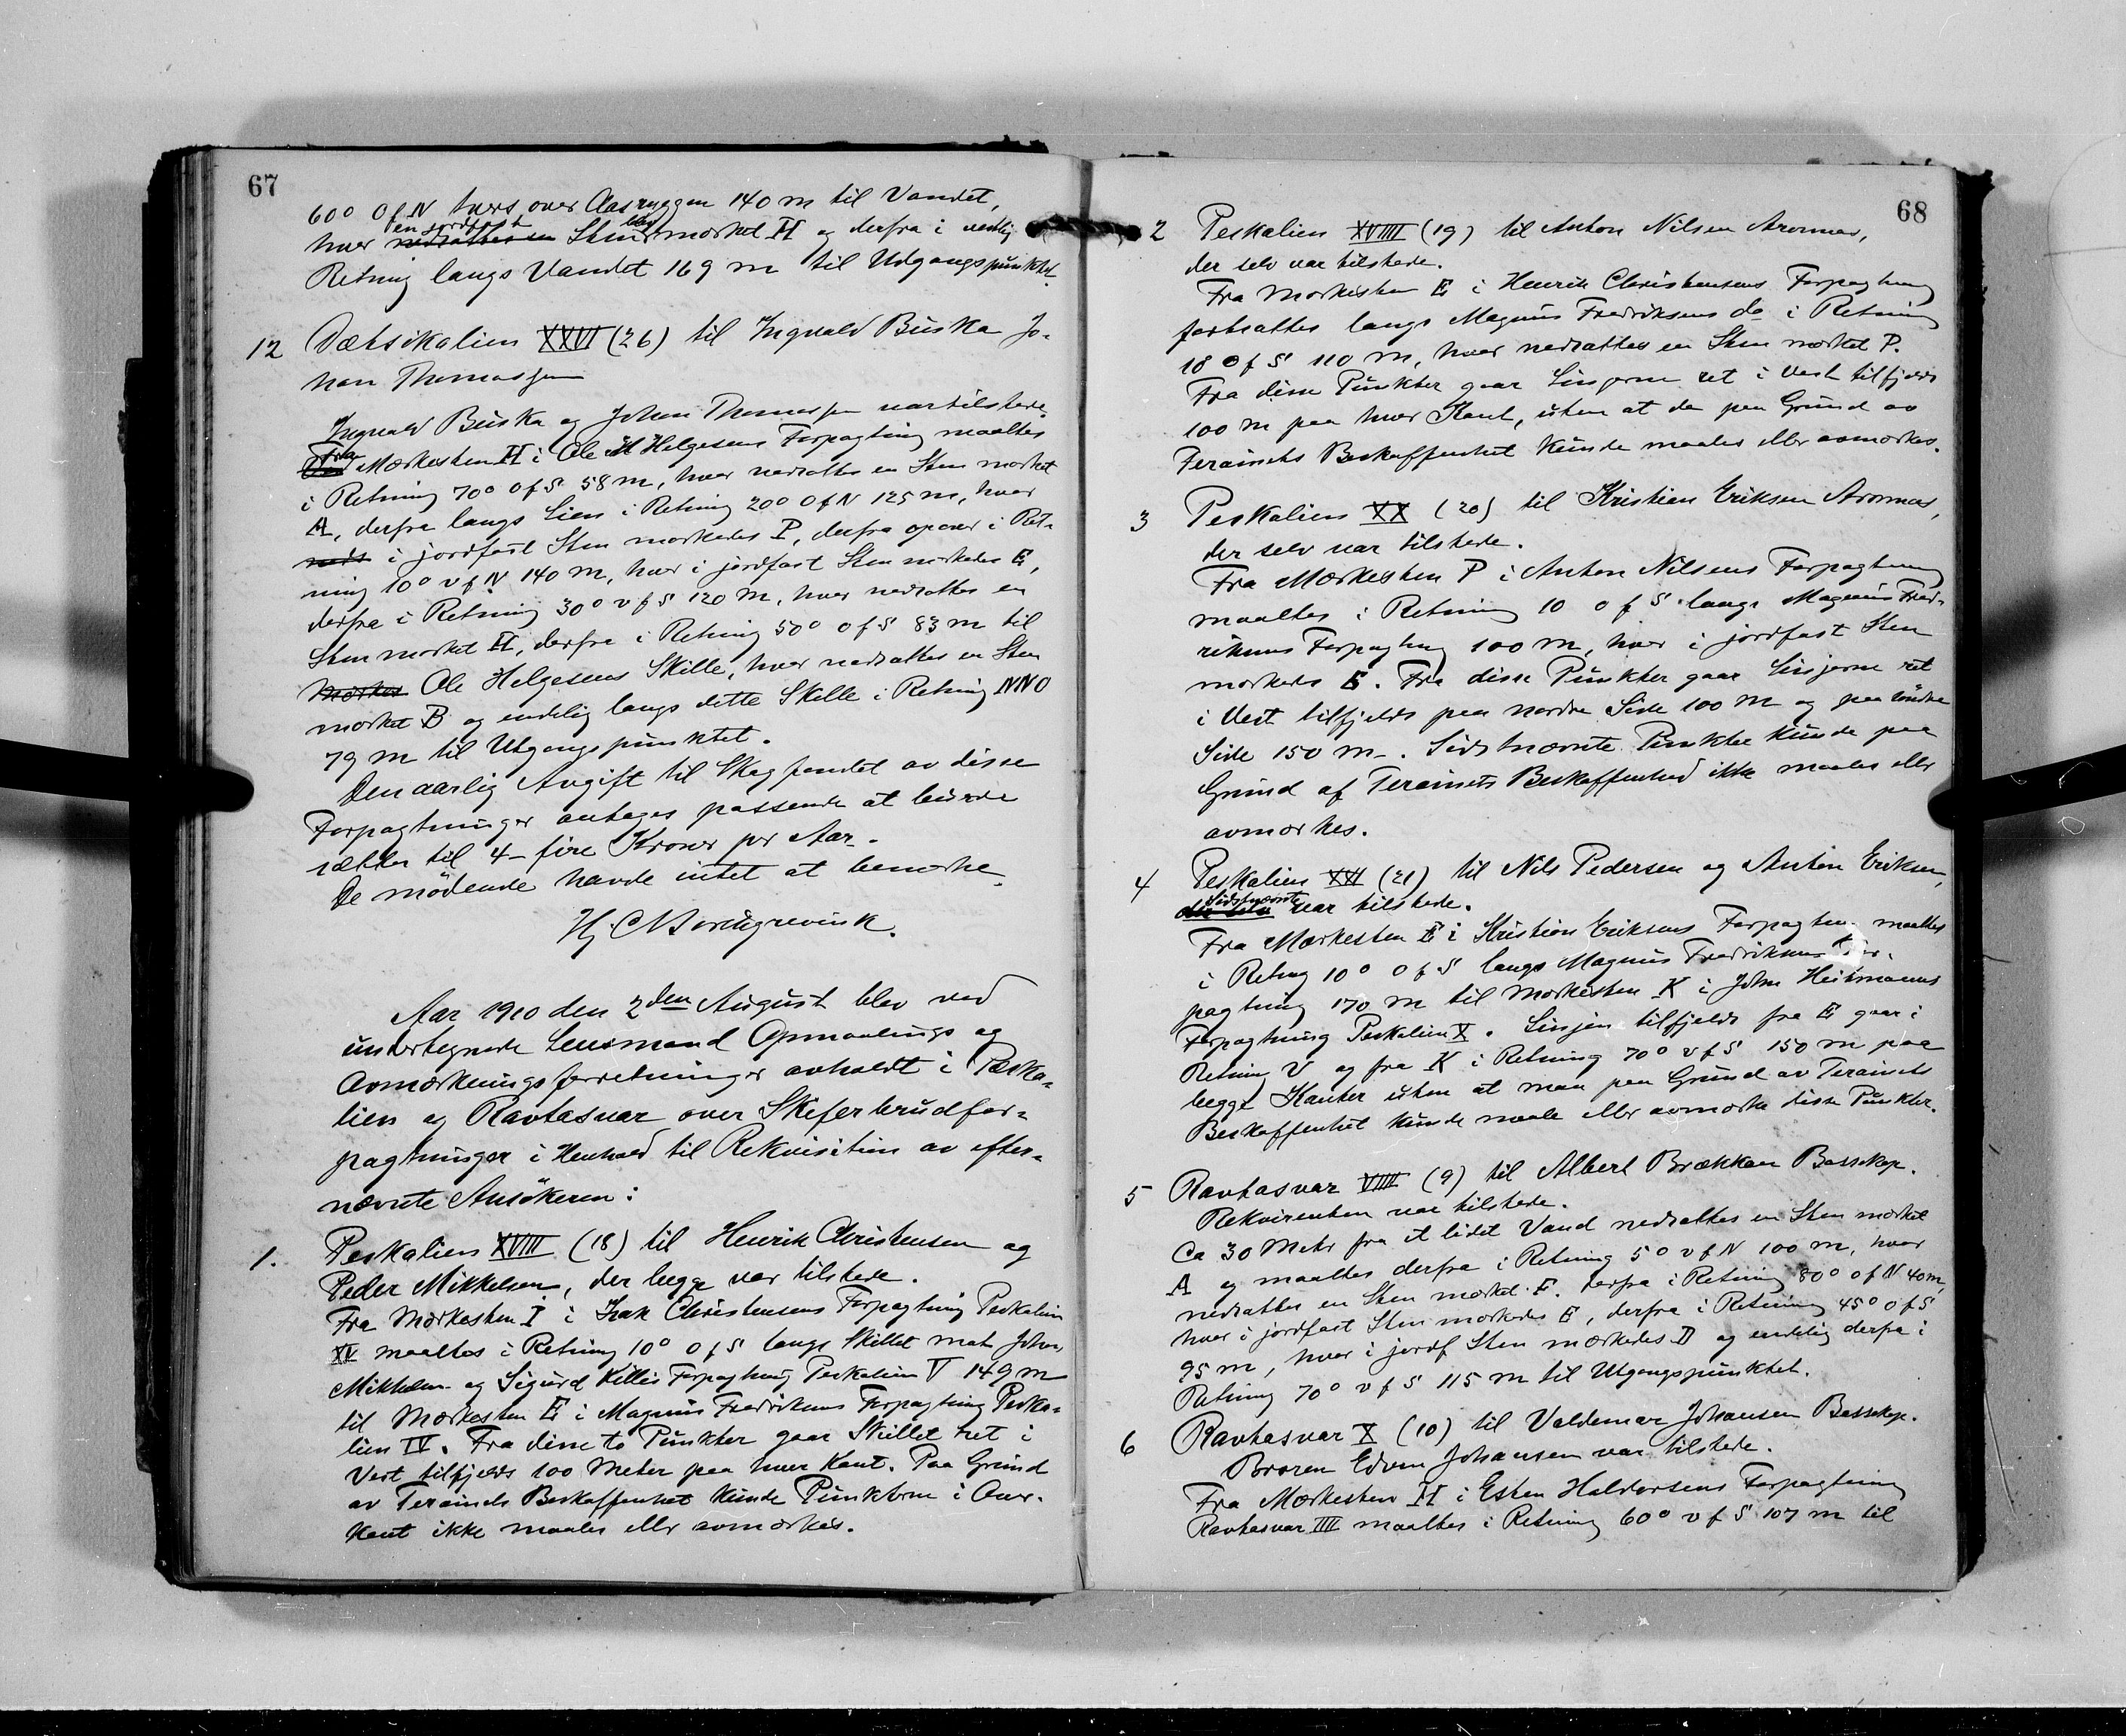 67
60° O f N tvers over Aasryggen 140 m til Vandet,
hvor en jordfast Sten blev mærket H og derfra i vestlig
Retning langs Vandet 169 m til Udgangspunktet.
12 Dætsikalien XXVI (26) til Ingvald Buska Jo-
han Thomassen
Ingvald Buska og Johan Thomassen var tilstede.
Fra Mærkesten H i Ole M Helgesens Forpagtning maaltes
i Retning 70° O f S 58 m, hvor nedsattes en Sten mærket
A, derfra langs Lien i Retning 20° O f N 125 m, hvor
neds i jordfast Sten mærkedes P, derfra opover i Ret-
ning 10° v f N 140 m, hvor i jordfast Sten mærkedes E,
derfra i Retning 30° v f S 120 m, hvor nedsattes en
Sten mærket H, derfra i Retning 50° O f S 83 m til
Mærkes Ole Helgesens Skille, hvor nedsattes en Sten
mærket B og endelig langs dette Skille i Retning NNO
79 m til Utgangspunktet.
Den aarlig Avgift til Skogfondet av disse
Forpagtninger antages passende at burde
sættes til 4 – fire Kroner pr Aar.
De mødende havde intet at bemærke.
Hj. C Borchgrevink.
Aar 1910 den 2den August blev ved
undertegnede Lensmand Opmaalings og
Avmærkningsforretninger avholdt i Peska-
lien og Ravtasvar over Skiferbrudfor-
pagtninger i Henhold til Rekvisition av efter-
nævnte Ansökere:
1. Peskalien XVIII (18) til Henrik Christensen og
Peder Mikkelsen, der begge var tilstede.
Fra Mærkesten I i Isak Christensens Forpagtning Peskalien
XV maaltes i Retning 10° O f S langs Skillet mot Johan
Mikkelsen og Sigurd Killis Forpagtning Peskalien V 149 m
til Mærkesten E i Magnus Fredriksens Forpagtning Peska-
lien IV. Fra disse to Punkter gaar Skillet ret i
Vest tilfjelds 100 Meter paa hver Kant. Paa Grund
av Terainets Beskaffenhet kunde Punkterne i Over-
kant ikke maales eller avmærkes.
68
2 Peskalien XVIIII (19) til Anton Nilsen Aronnes,
der selv var tilstede.
Fra Mærkesten E i Henrik Christensens Forpagtning
fortsattes langs Magnus Fredriksens do i Retning
10 O f S 110 m, hvor nedsattes en Sten mærket P.
Fra disse Punkter gaar Linjerne ret i Vest tilfjelds
100 m paa hver Kant, uten at de paa Grund av
Terainets Beskaffenhet kunde maales eller avmærkes.
3 Peskalien XX (20) til Kristian Eriksen Aronnes,
der selv var tilstede.
Fra Mærkesten P i Anton Nilsens Forpagtning
maaltes i Retning 10 O f S langs Magnus Fred-
riksens Forpagtning 100 m, hvor i jordfast Sten
mærkedes E. Fra disse Punkter gaar Linjerne ret
i Vest tilfjelds paa nordre Side 100 m og paa söndre
Side 150 m. Sidstnævnte Punkter kunde paa
Grund af Terainets Beskaffenhed ikke maales eller
avmærkes.
4 Peskalien XXI (21) til Nils Pedersen og Anton Eriksen,
der selv Sidstnævnte var tilstede.
Fra Mærkesten E i Kristian Eriksens Forpagtning maaltes
i Retning 10° O f S langs Magnus Fredriksens For-
pagtning 170 m til Mærkesten K i John Heitmanns
Forpagtning Peskalien X. Linjen tilfjelds fra E gaar i
Retning V og fra K i Retning 70° v f S 150 m paa
begge Kanter uten at man paa Grund av Terainets
Beskaffenhet kunde maale eller avmærke disse Punkter.
5 Ravtasvar VIIII (9) til Albert Brækkan Bossekop.
Rekvirenten var tilstede.
Ca 30 Meter fra et lidet Vand nedsattes en Sten mærket
A og maaltes derfra i Retning 5° v f N 100 m, hvor
nedsattes en Sten mærket F. derfra i Retning 80° O f N 40 m,
hvor i jordfast Sten mærkedes E, derfra i Retning 45° O f S
95 m, hvor i jordf Sten mærkedes D og endelig derfra i
Retning 70° v f S 115 m til Utgangspunktet.
6 Ravtasvar X (10) til Valdemar Johansen Bossekop.
Broren Edvin Johansen var tilstede.
Fra Mærkesten H i Esten Haldorsens Forpagtning
Ravtasvar IIII maaltes i Retning 60° v f S 107 m til